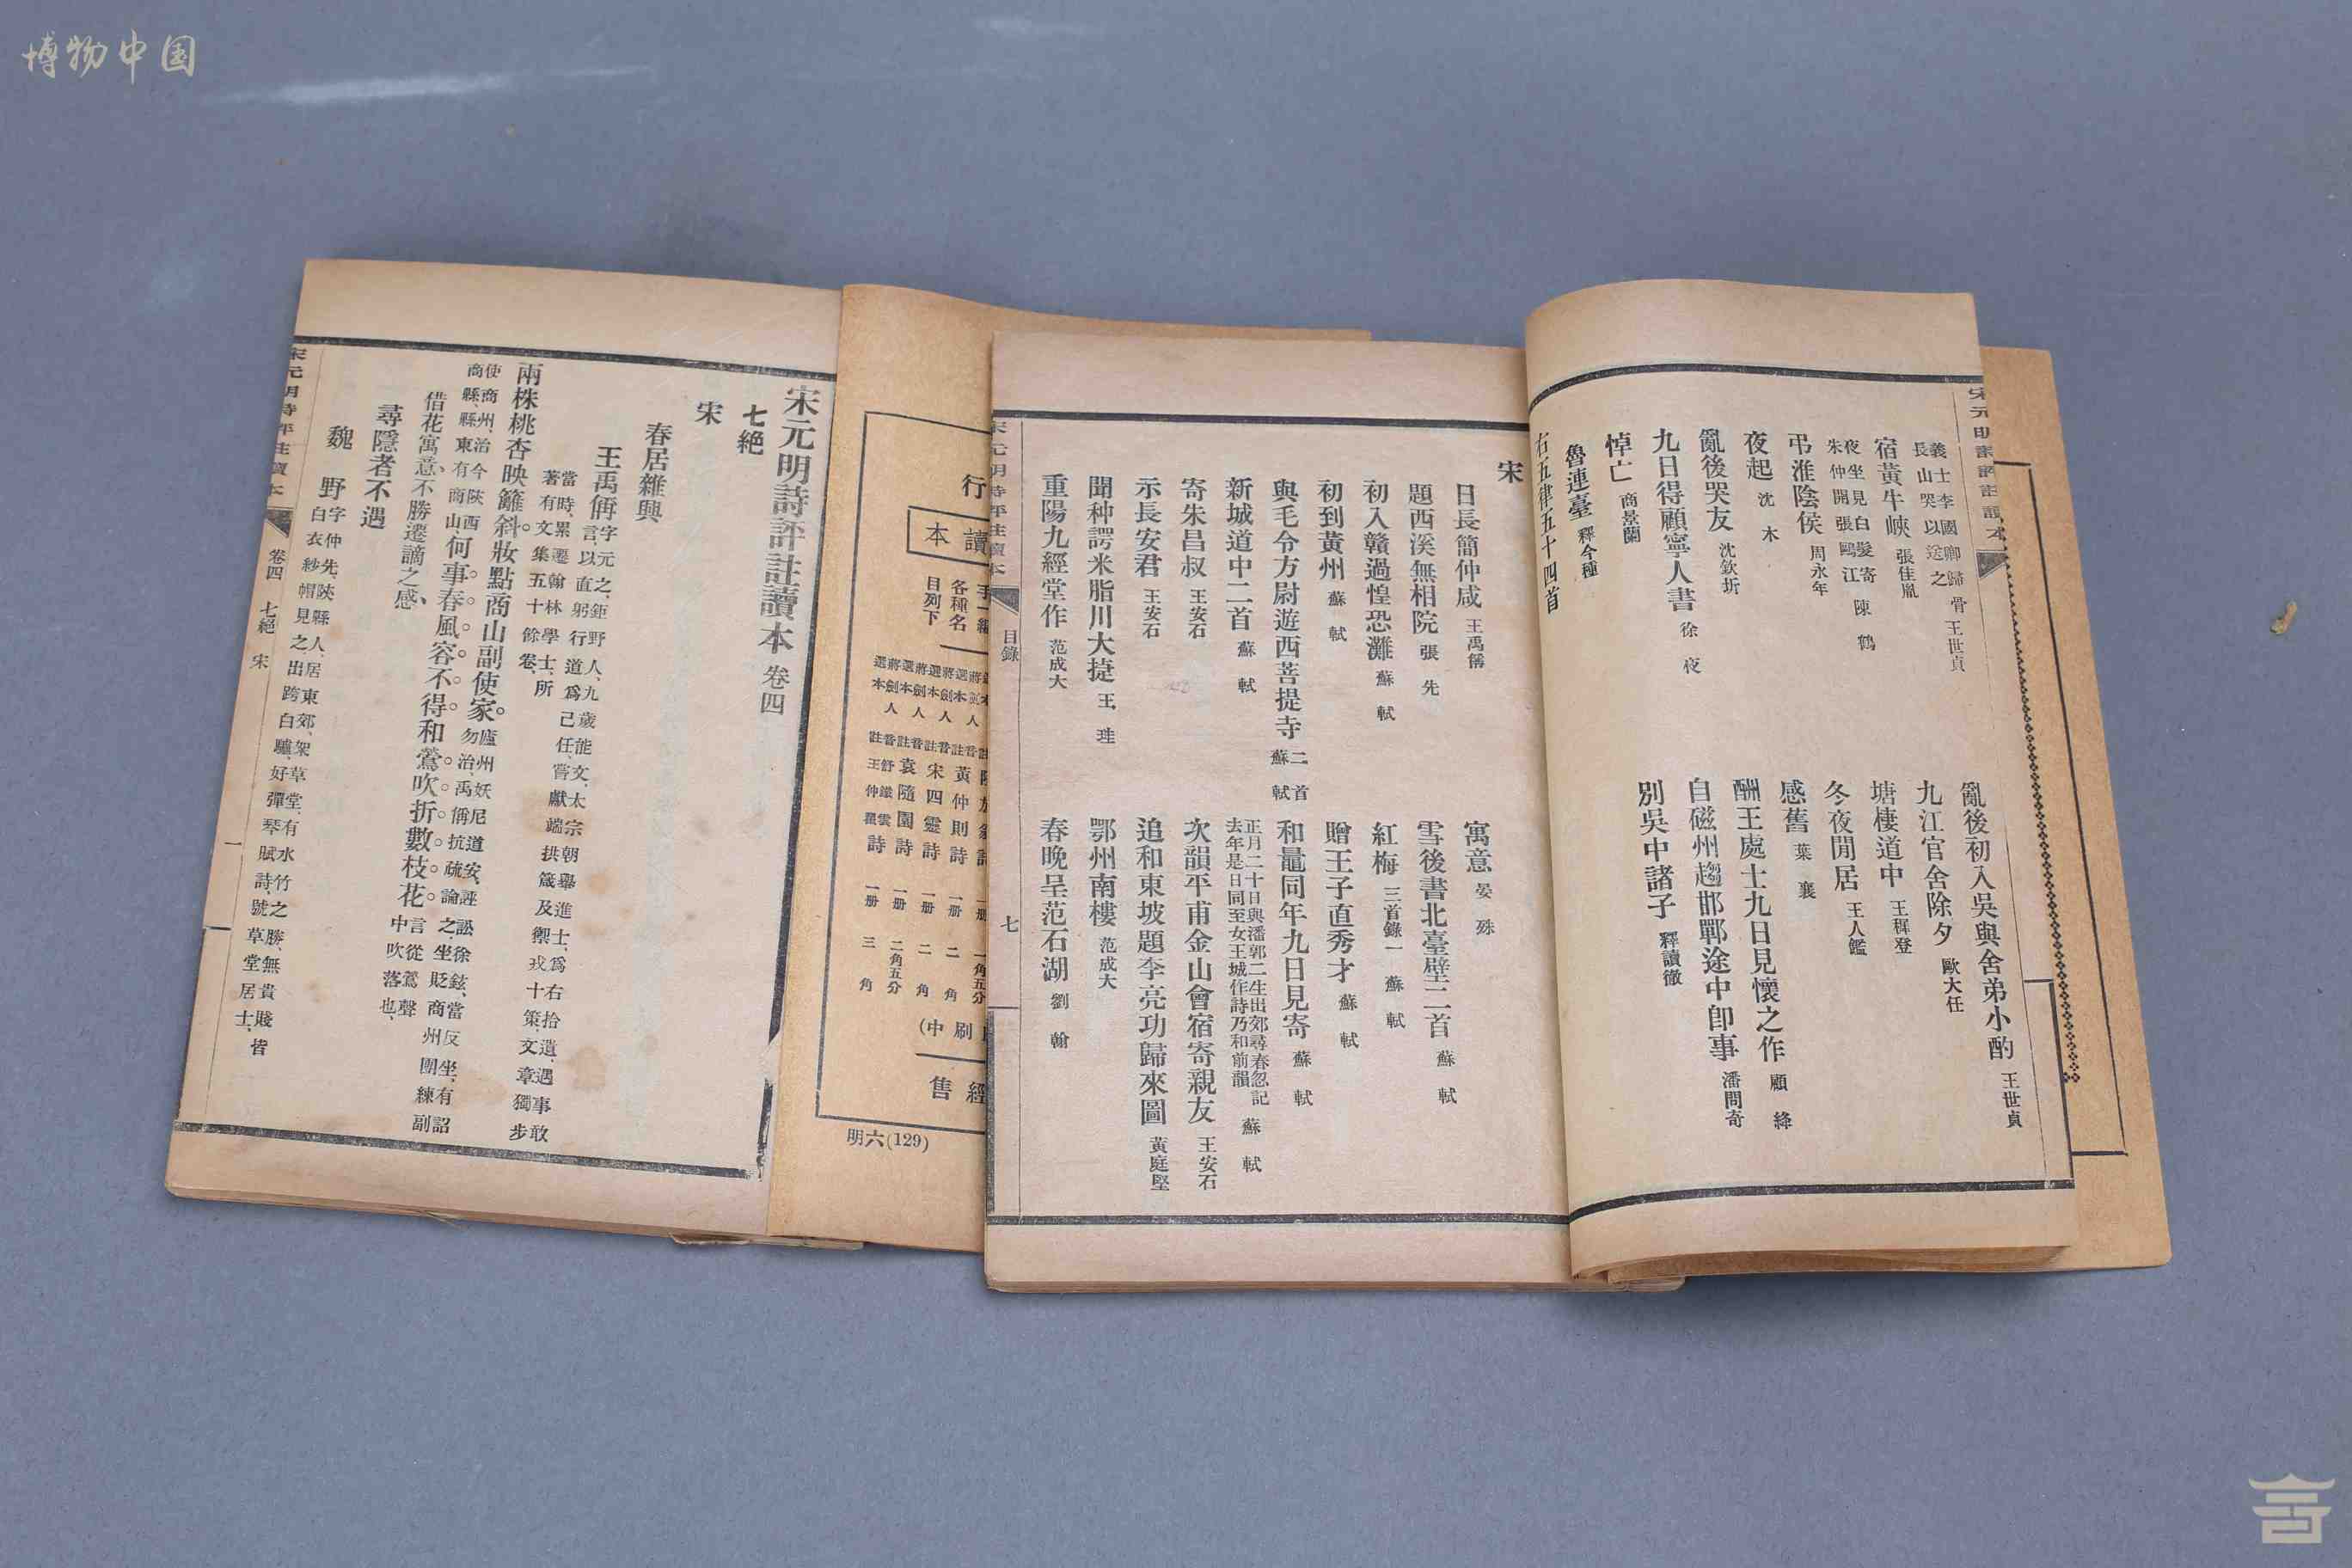 博物中国
亂後初入吳與舍弟小酌 王世貞
義士李國卿歸骨長山哭以送之 王世貞
九江官舍除夕 歐大任
宿黃牛峽 張佳胤
塘棲道中 王穉登
夜坐見白髮寄朱仲開張鷗江 陳鶴
冬夜閒居 王人鑑
弔淮陰侯 周永年
感舊 葉襄
夜起 沈木
酬王處士九日見懷之作 顧絳
亂後哭友 沈欽圻
自磁州趨邯鄲途中卽事 潘問奇
九日得顧寧人書 徐夜
別吳中諸子 釋讀徹
悼亡 商景蘭
魯連臺 釋今種
右五律五十四首
宋
日長簡仲咸 王禹偁
寓意 晏殊
題西溪無相院 張先
雪後書北臺壁二首 蘇軾
初入贛過惶恐灘 蘇軾
紅梅 三首錄一 蘇軾
初到黃州 蘇軾
贈王子直秀才 蘇軾
與毛令方尉遊西菩提寺 二首 蘇軾
和鼂同年九日見寄 蘇軾
新城道中二首 蘇軾
正月二十日與潘郭二生出郊尋春忽記去年是日同至女王城作詩乃和前韻 蘇軾
寄朱昌叔 王安石
次韻平甫金山會宿寄親友 王安石
示長安君 王安石
追和東坡題李亮功歸來圖 黃庭堅
聞种諤米脂川大捷 王珪
鄂州南樓 范成大
重陽九經堂作 范成大
春晚呈范石湖 劉翰
目錄
七
行
讀本
各種名
目列下
黃仲則詩 一册 二角
宋四靈詩 一册 二角
袁隨園詩 一册 二角五分
舒鐵雲王仲瞿詩 一册 三角
刷中)
經售
明六(129)
宋元明詩評註讀本 卷四
七絕
宋
春居雜興
王禹偁 字元之、鉅野人、九歲能文、太宗朝舉進士、爲右拾遺、遇事敢
言、以直躬行道爲己任、嘗獻端拱箴及禦戎十策、文章獨步
當時、累遷翰林學士、所
著有文集五十餘卷、
兩株桃杏映籬斜。妝點商山副使家。廬州妖尼道安、誣訟徐鉉、當反坐、有詔
勿治、禹偁抗疏論之、坐貶商州團練副
使、商州、治今陜西
商縣、縣東有商山 何事春風容不得。和鶯吹折數枝花。言從鶯聲
中吹落也、
借花寓意、不勝遷謫之感、
尋隱者不遇
魏野 字仲先、陝縣人、居東郊、架草堂、有水竹之勝、無貴賤
白衣紗帽見之、出跨白驢、好彈琴賦詩、號草堂居士、皆
卷四 七絕 宋
一